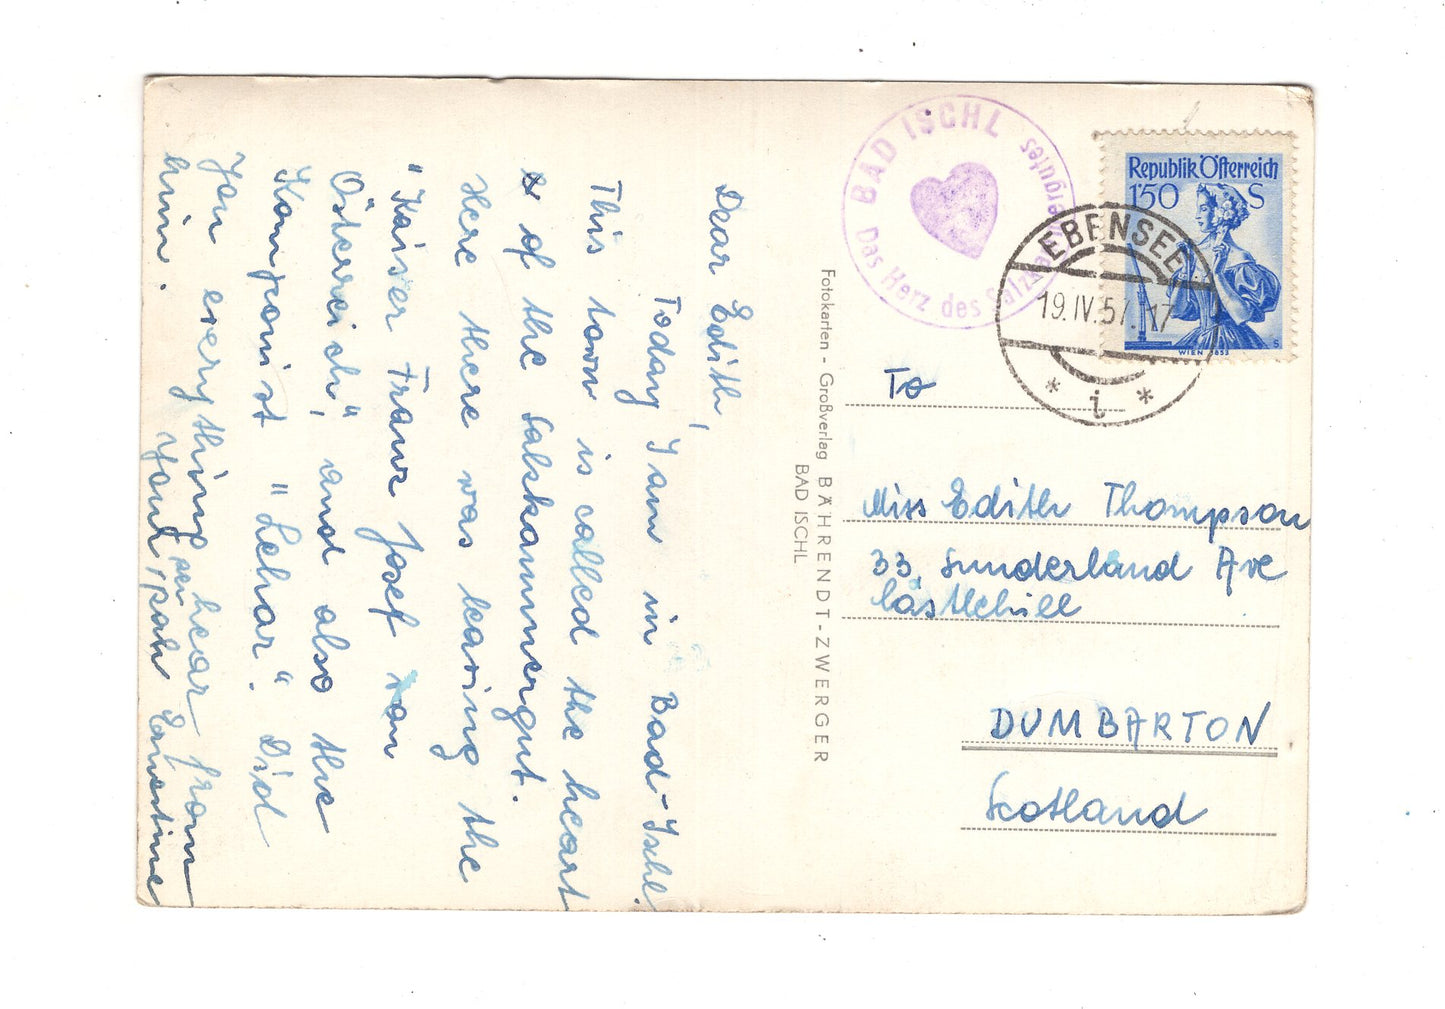 Dear Edith,
Today I am in Bad-Ischl.
This town is called the heart
of the Salzkammergut.
Here there was leaving the
"Kaiser Franz Josef von
Österreich", and also the
Komponist "Lehar". Did
you everything hear from
him.
Your pen
pal Ernestine
Fotokarten - Großverlag BÄHRENDT-ZWERGER
BAD ISCHL
BAD ISCHL
Das Herz des Salzkammergutes
Republik Österreich
1'50 S
WIEN 1853
EBENSEE
19.IV.57.-17
* i *
To
Miss Edith Thompson
33, Sunderland Ave
Castlehill
DUMBARTON
Scotland